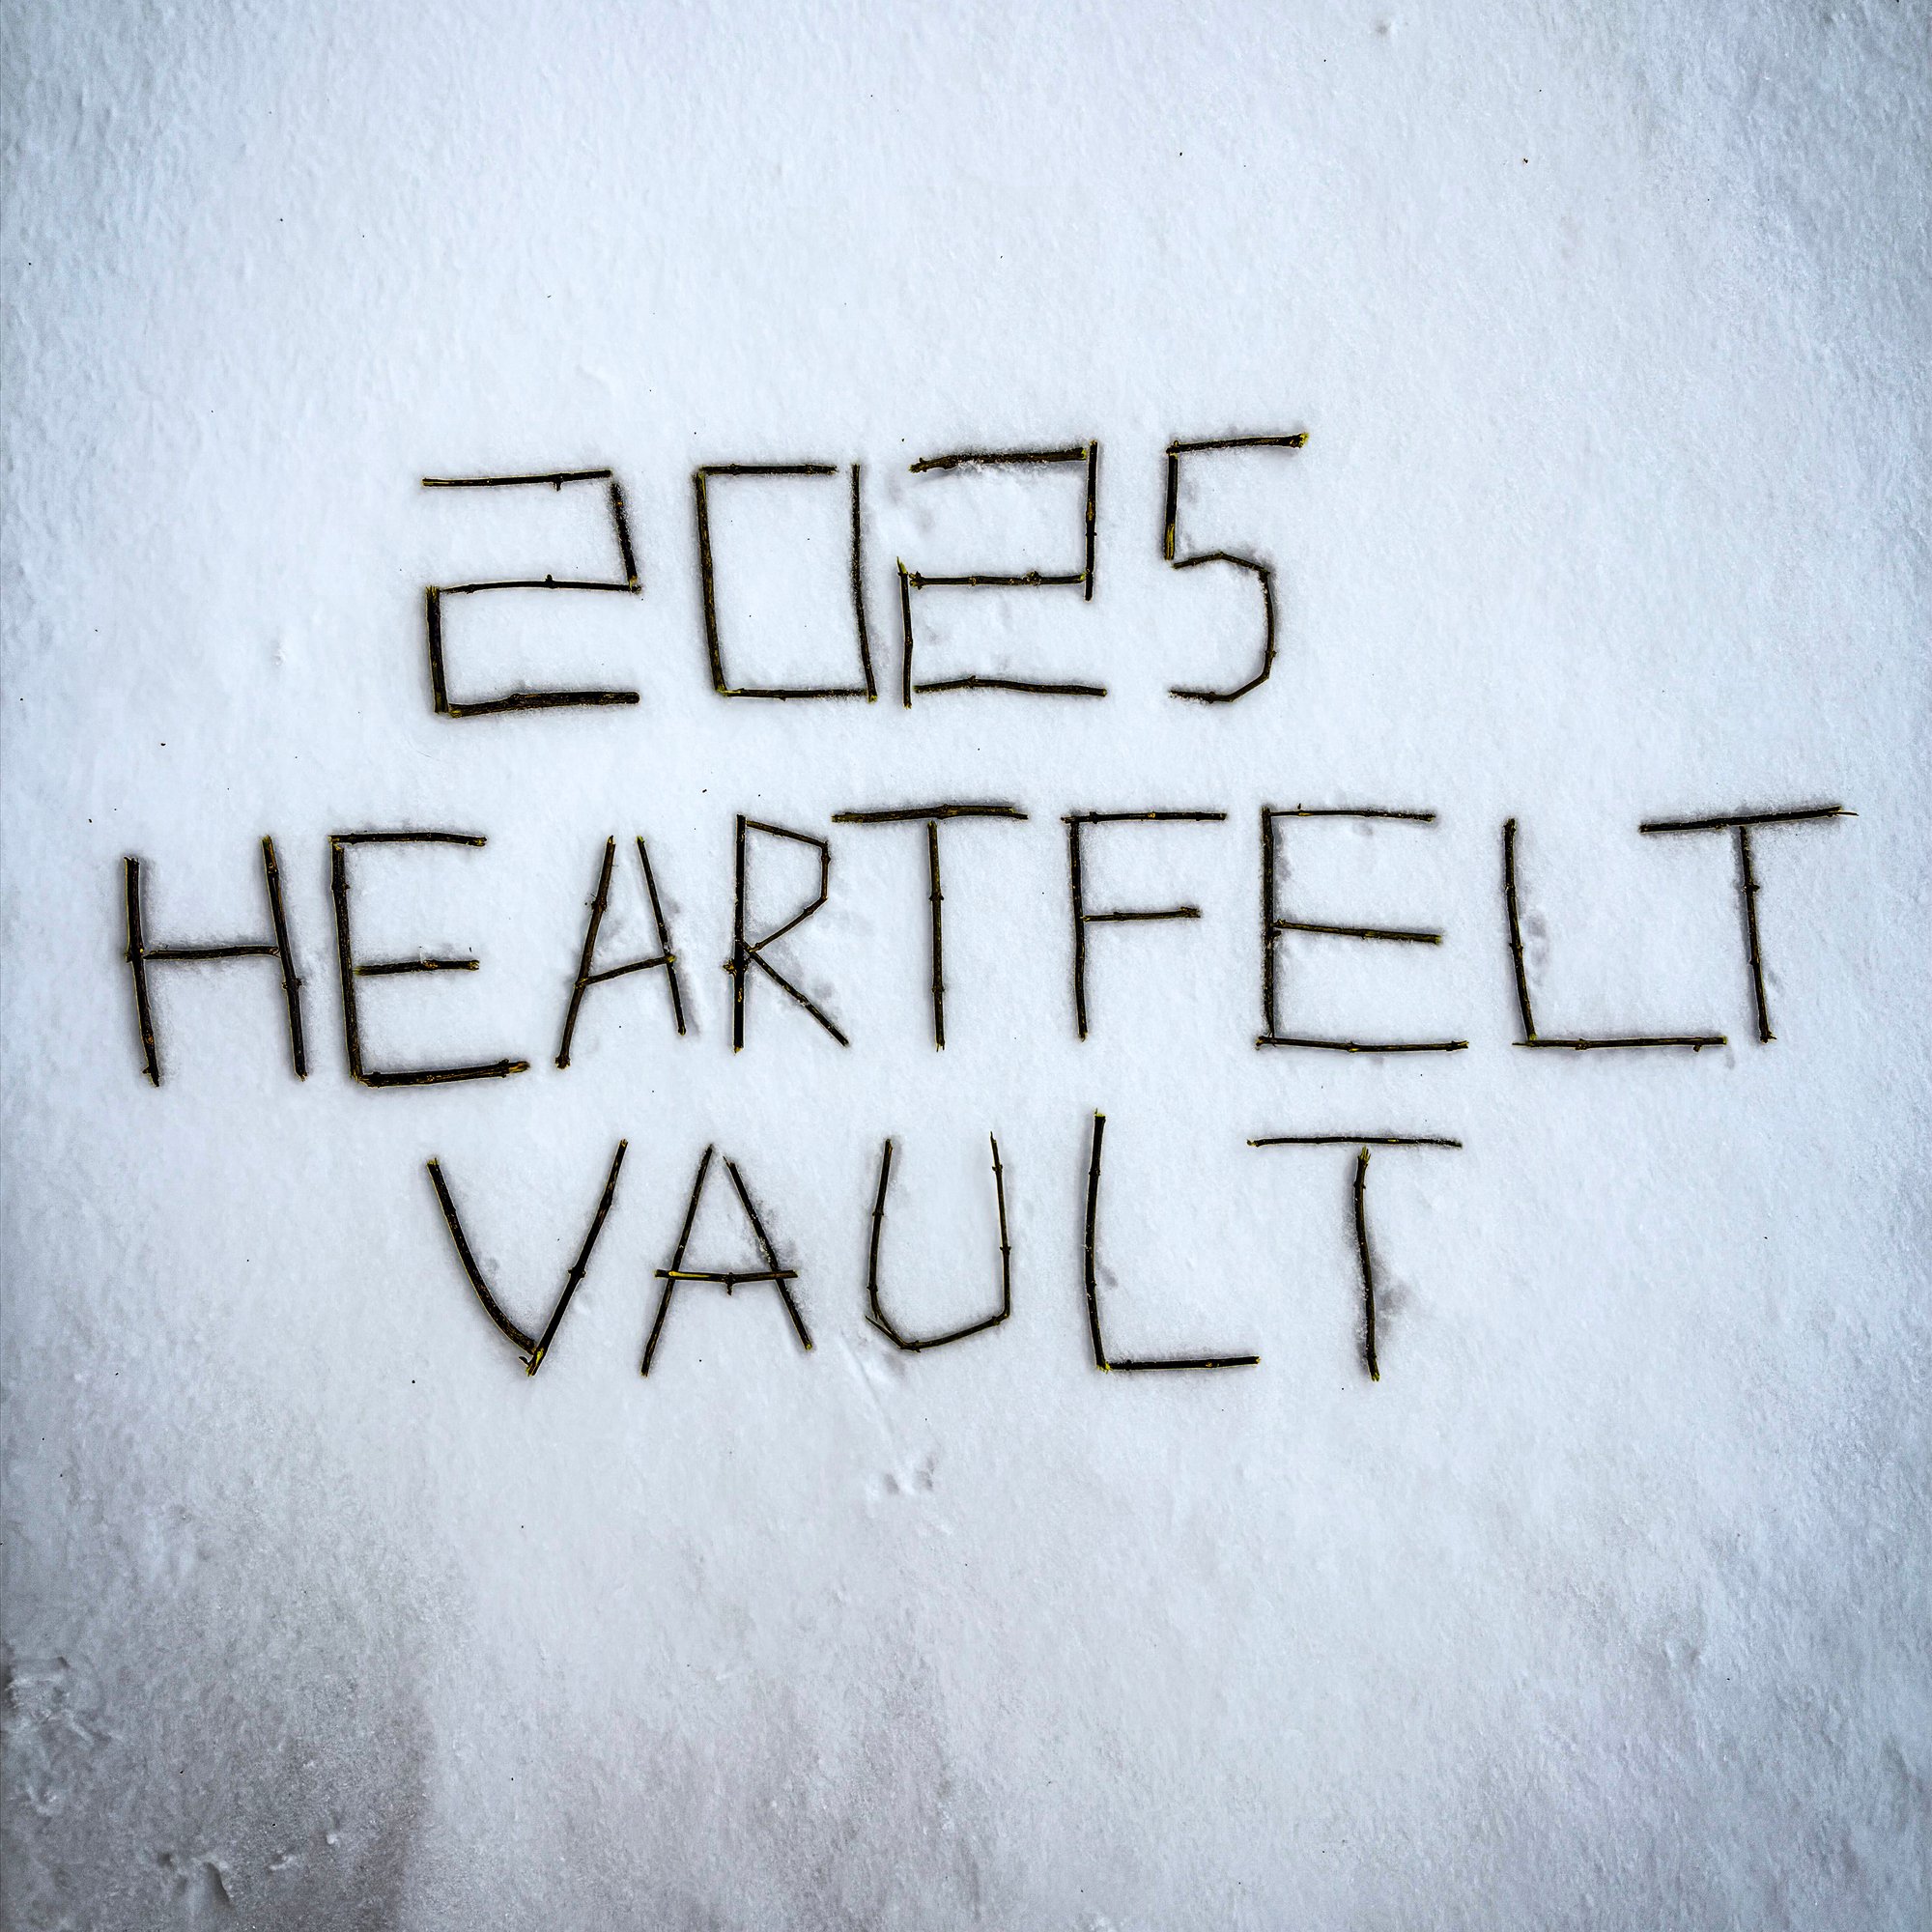 2025
HEARTFELT
VAULT